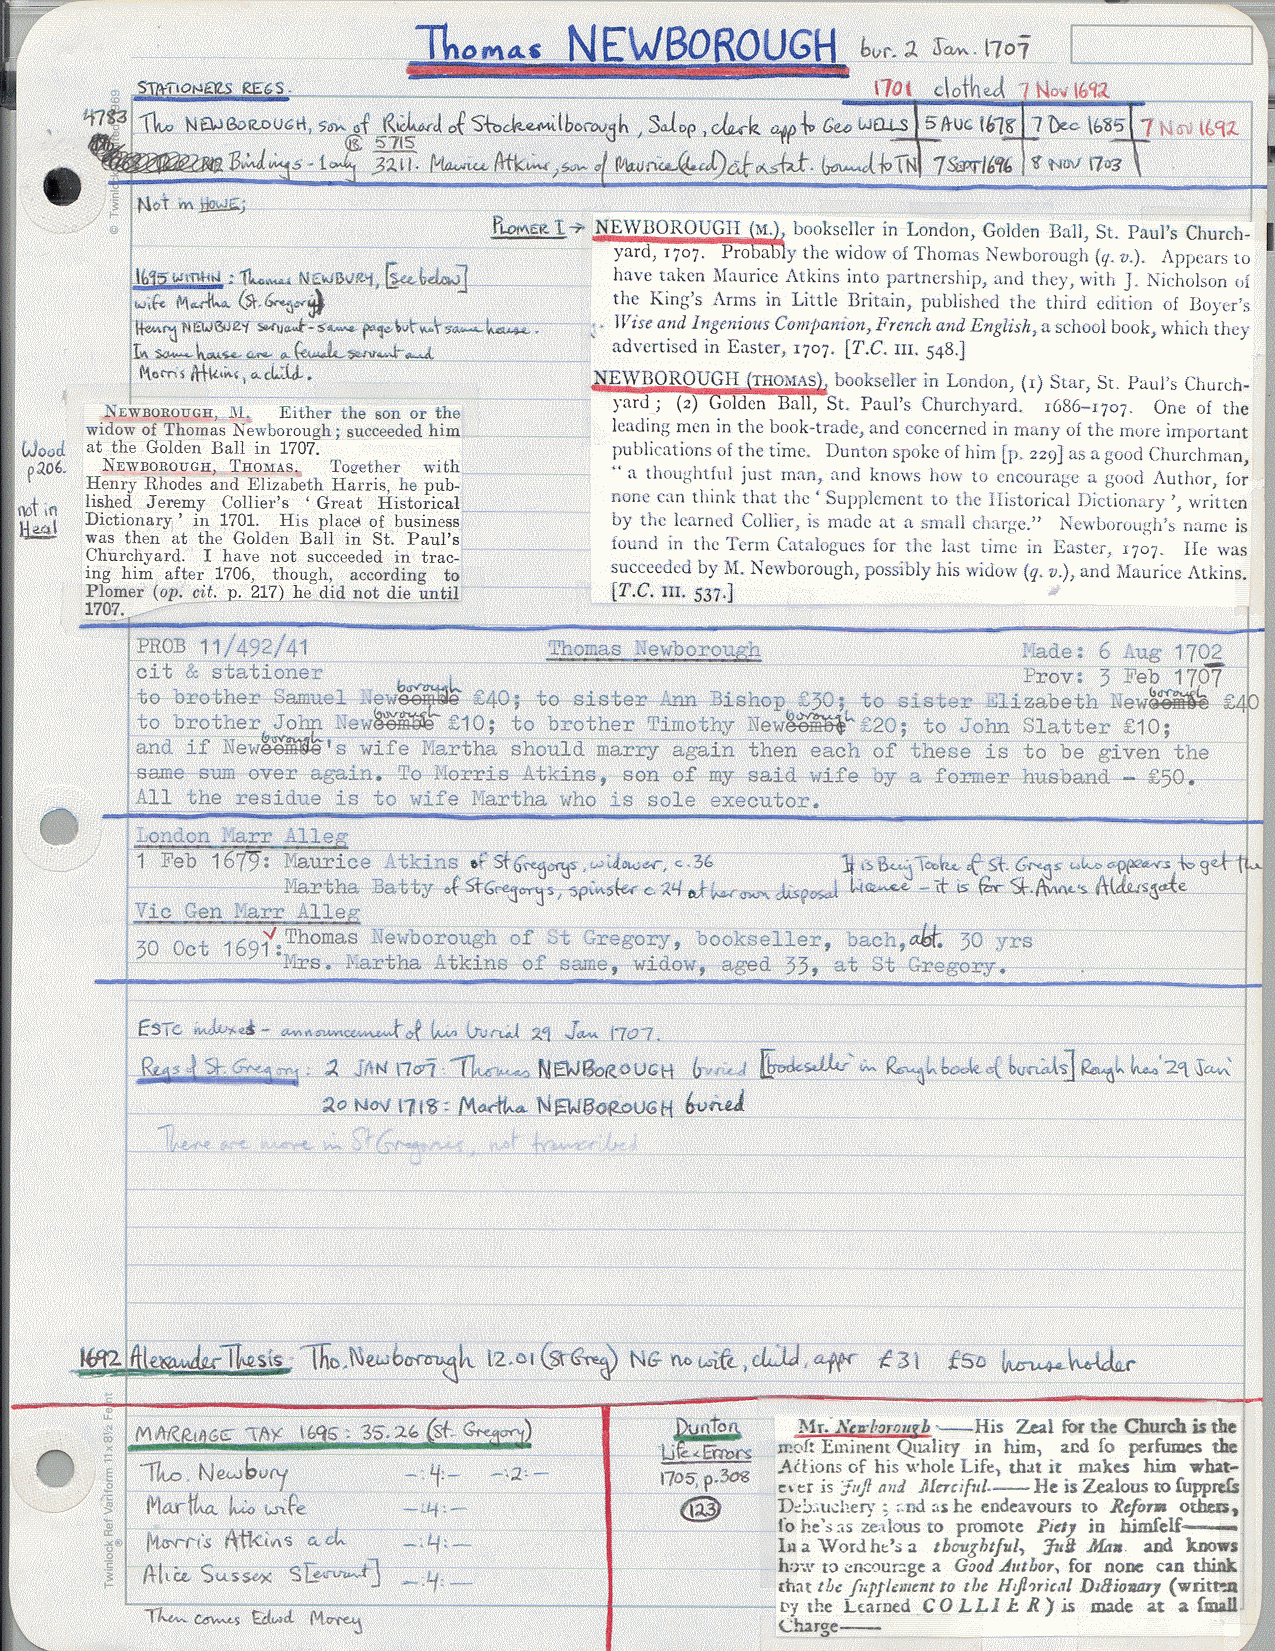 Thomas NEWBOROUGH bur. 2 Jan. 1707
STATIONERS REGS.
1701 clothed 7 Nov 1692
4783 Tho NEWBOROUGH, son of Richard of Stockemilborough, Salop, clerk app to Geo WELLS 5 AUG 1678 7 Dec 1685 7 Nov 1692
5715
Bindings - 1 only 3211. Maurice Atkins, son of Maurice (decd) cit & stat. bound to TN 7 SEPT 1696 8 NOV 1703
Not in HOWE;
1695 WITHIN: Thomas NEWBURY, [see below]
wife Martha (St. Gregory)
Henry NEWBURY servant - same page but not same house.
In same house are a female servant and
Morris Atkins, a child.
PLOMER I →
NEWBOROUGH (M.), bookseller in London, Golden Ball, St. Paul's Church-
yard, 1707. Probably the widow of Thomas Newborough (q. v.). Appears to
have taken Maurice Atkins into partnership, and they, with J. Nicholson of
the King's Arms in Little Britain, published the third edition of Boyer's
Wise and Ingenious Companion, French and English, a school book, which they
advertised in Easter, 1707. [T.C. III. 548.]
NEWBOROUGH (THOMAS), bookseller in London, (1) Star, St. Paul's Church-
yard; (2) Golden Ball, St. Paul's Churchyard. 1686-1707. One of the
leading men in the book-trade, and concerned in many of the more important
publications of the time. Dunton spoke of him [p. 229] as a good Churchman,
"a thoughtful just man, and knows how to encourage a good Author, for
none can think that the 'Supplement to the Historical Dictionary', written
by the learned Collier, is made at a small charge." Newborough's name is
found in the Term Catalogues for the last time in Easter, 1707. He was
succeeded by M. Newborough, possibly his widow (q. v.), and Maurice Atkins.
[T.C. III. 537.]
Wood
p206.
not in
Heal
NEWBOROUGH, M. Either the son or the
widow of Thomas Newborough; succeeded him
at the Golden Ball in 1707.
NEWBOROUGH, THOMAS. Together with
Henry Rhodes and Elizabeth Harris, he pub-
lished Jeremy Collier's 'Great Historical
Dictionary' in 1701. His place of business
was then at the Golden Ball in St. Paul's
Churchyard. I have not succeeded in trac-
ing him after 1706, though, according to
Plomer (op. cit. p. 217) he did not die until
1707.
PROB 11/492/41 Thomas Newborough Made: 6 Aug 1702
cit & stationer Prov: 3 Feb 1707
to brother Samuel Newborough £40; to sister Ann Bishop £30; to sister Elizabeth Newborough £40
to brother John Newborough £10; to brother Timothy Newborough £20; to John Slatter £10;
and if Newborough's wife Martha should marry again then each of these is to be given the
same sum over again. To Morris Atkins, son of my said wife by a former husband - £50.
All the residue is to wife Martha who is sole executor.
London Marr Alleg
1 Feb 1679: Maurice Atkins of St Gregorys, widower, c.36 It is Benj Tooke of St. Gregs who appears to get the
Martha Batty of St Gregorys, spinster c.24 at her own disposal licence - it is for St. Anne's Aldersgate
Vic Gen Marr Alleg
30 Oct 1691: Thomas Newborough of St Gregory, bookseller, bach, abt. 30 yrs
Mrs. Martha Atkins of same, widow, aged 33, at St Gregory.
ESTC indexes - announcement of his burial 29 Jan 1707.
Regs of St. Gregory: 2 JAN 1707: Thomas NEWBOROUGH buried [bookseller in Rough book of burials] Rough has '29 Jan'
20 NOV 1718: Martha NEWBOROUGH buried
There are more in St Gregories, not transcribed
1692 Alexander Thesis Tho. Newborough 12.01 (St Greg) NG no wife, child, appr £31 £50 householder
MARRIAGE TAX 1695: 35.26 (St. Gregory)
Tho. Newbury -:4:- -:2:-
Martha his wife -:4:-
Morris Atkins a ch -:4:-
Alice Sussex S[ervant] -:4:-
Then comes Edwd Morey
Dunton
Life & Errors
1705, p.308
123
Mr. Newborough—His Zeal for the Church is the
moſt Eminent Quality in him, and ſo perfumes the
Actions of his whole Life, that it makes him what-
ever is Juſt and Merciful.—He is Zealous to ſuppreſs
Debauchery; and as he endeavours to Reform others,
ſo he's as zealous to promote Piety in himſelf—
In a Word he's a thoughtful, Juſt Man and knows
how to encourage a Good Author, for none can think
that the ſupplement to the Hiſtorical Dictionary (written
by the Learned COLLIER) is made at a ſmall
Charge—
© Twinlock 1969
Twinlock Ref Variform 11 x 8½ Feint